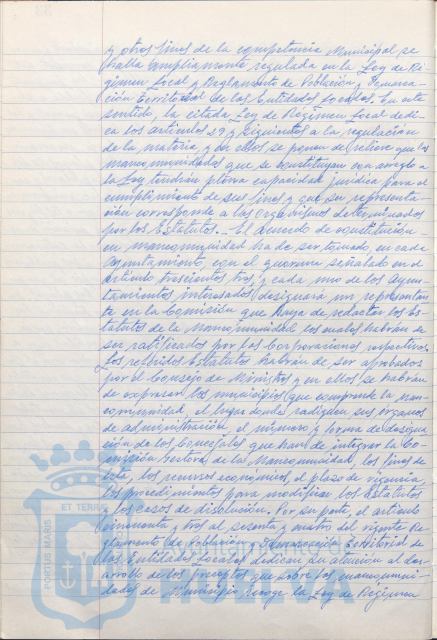 y otros fines de la competencia Municipal, se
halla ampliamente regulada en la Ley de Ré-
gimen Local y Reglamento de Población y Demarca-
ción Territorial de las Entidades Locales. En este
sentido, la citada Ley de Régimen Local dedi-
ca los artículos 29 y siguientes a la regulación
de la materia, y en ellos se pone de relieve que las
mancomunidades que se constituyan con arreglo a
la Ley tendrán plena capacidad jurídica para el
cumplimiento de sus fines y que su representa-
ción corresponde a los organismos determinados
por los Estatutos. El acuerdo de constitución
en mancomunidad ha de ser tomado, en cada
Ayuntamiento, con el quorum señalado en el
artículo trescientos tres, y cada uno de los Ayun-
tamientos interesados designará un representan-
te en la Comisión que haya de redactar los Es-
tatutos de la Mancomunidad los cuales habrán de
ser ratificados por las Corporaciones respectivas.
Los referidos Estatutos habrán de ser aprobados
por el Consejo de Ministros y en ellos se habrán
de expresar los municipios que comprende la man-
comunidad, el lugar donde radiquen sus órganos
de administración, el número y forma de designa-
ción de los Concejales que han de integrar la Co-
misión Gestora de la Mancomunidad, los fines de
ésta, los recursos económicos, el plazo de vigencia,
los procedimientos para modificar los Estatutos
y los casos de disolución. Por su parte, el artículo
cincuenta y tres al sesenta y cuatro del vigente Re-
glamento de Población y Demarcación Territorial de
las Entidades Locales dedican su atención al des-
arrollo de los preceptos que sobre las mancomuni-
dades de Municipio recoge la Ley de Régimen
PORTUS MARIS ET TERRAE
Ayuntamiento de
HUELVA